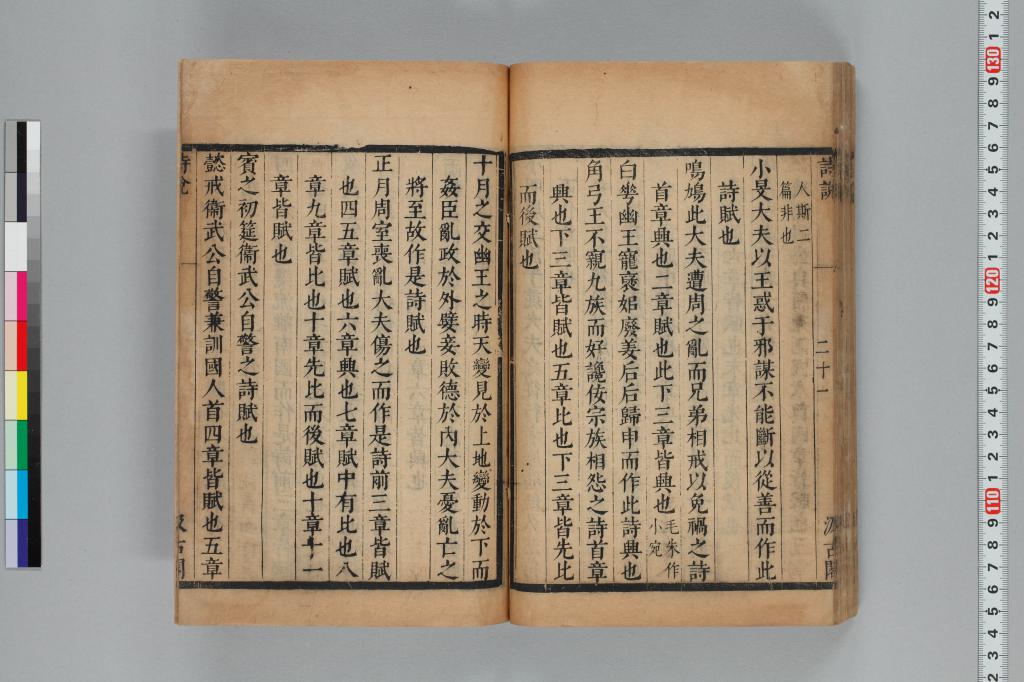 詩說
二十一
汲古閣
人斯二
篇非也
小旻大夫以王惑于邪謀不能斷以從善而作此
詩賦也
鳴鳩此大夫遭周之亂而兄弟相戒以免禍之詩
首章興也二章賦也此下三章皆興也毛朱作
小宛
白華幽王寵褒姒廢姜后后歸申而作此詩興也
角弓王不親九族而好讒佞宗族相怨之詩首章
興也下三章皆賦也五章比也下三章皆先比
而後賦也
十月之交幽王之時天變見於上地變動於下而
姦臣亂政於外嬖妾敗德於內大夫憂亂亡之
將至故作是詩賦也
正月周室喪亂大夫傷之而作是詩前三章皆賦
也四五章賦也六章興也七章賦中有比也八
章九章皆比也十章先比而後賦也十章十一
章皆賦也
賓之初筵衞武公自警之詩賦也
懿戒衞武公自警兼訓國人首四章皆賦也五章